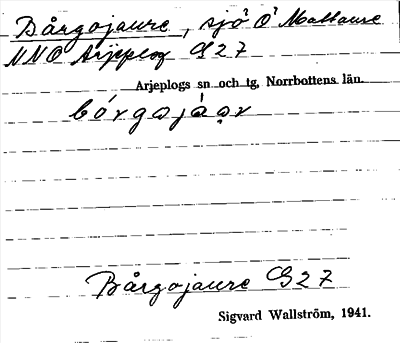 Bårgojaure, sjö Ö Mattaure
NNO Arjeplog G27
Arjeplogs sn och tg, Norrbottens län.
bórgojàər
Bårgojaure G27
Sigvard Wallström, 1941.